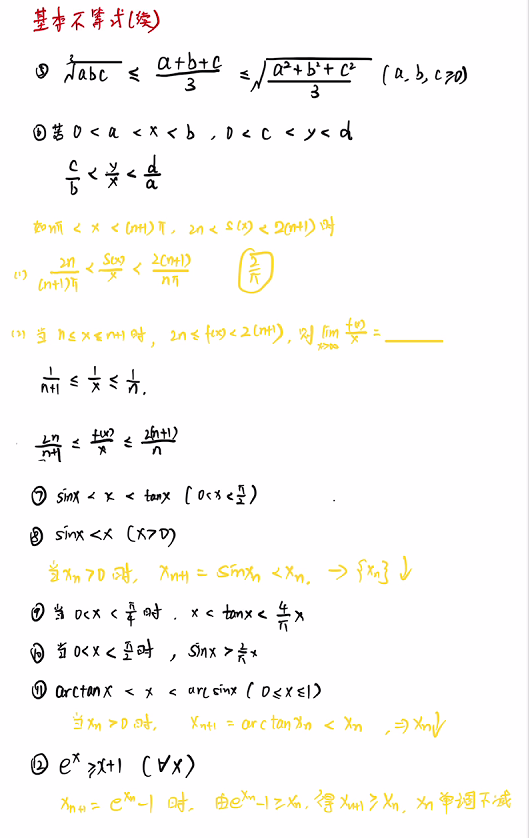 基本不等式(续)
⑤ ∛abc ≤ (a+b+c)/3 ≤ √((a²+b²+c²)/3) (a,b,c≥0)
⑥ 若 0<a<x<b, 0<c<y<d
c/b < y/x < d/a
如nπ < x < (n+1)π, 2n < S(x) < 2(n+1) 时
(1) 2n/((n+1)π) < S(x)/x < 2(n+1)/(nπ) 2/π
(2) 当 n≤x≤n+1时, 2n≤f(x)<2(n+1), 则 lim x→∞ f(x)/x = ____
1/(n+1) ≤ 1/x ≤ 1/n.
2n/(n+1) ≤ f(x)/x ≤ 2(n+1)/n
⑦ sinx < x < tanx (0<x<π/2)
⑧ sinx<x (x>0)
当xn>0时, xn+1 = sinxn <xn, → {xn}↓
⑨ 当 0<x<π/4时. x<tanx<4/π x
⑩ 当 0<x<π/2时, sinx>2/π x
⑪ arctanx < x < arcsinx (0≤x≤1)
当xn>0时. xn+1 = arctanxn < xn, ⇒ xn↓
⑫ eˣ≥x+1 (∀x)
xn+1 = e^xn-1 时, 由e^xn-1≥xn, 得xn+1≥xn, xn单调不减